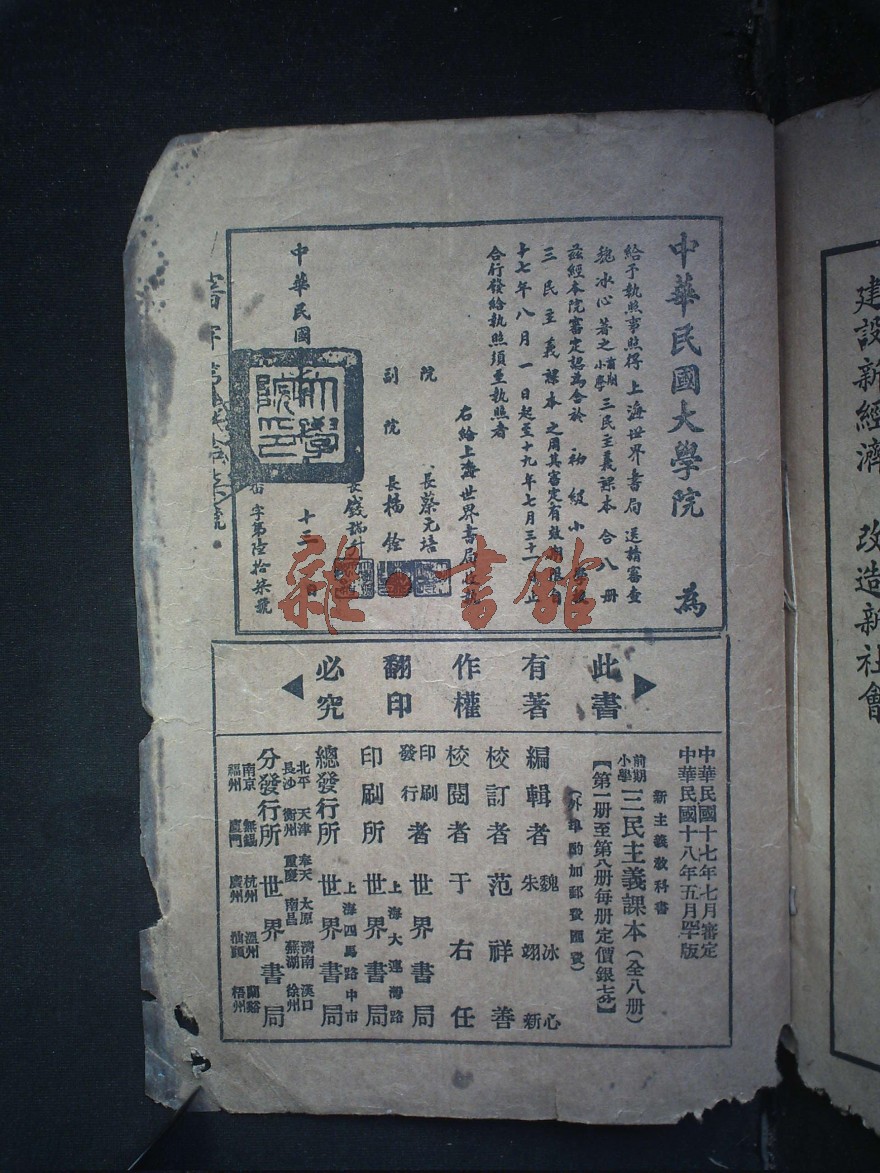 中華民國大學院 為
給予執照事照得 上海世界書局 送請審查
魏冰心著之前期小學三民主義課本 合八册
茲經本院審定認為合於 初級小學校
三民主義課本 之用其審定有效期限自
十七年八月一日起至十九年七月三十一日止
合行發給執照須至執照者
右給上海世界書局收執
院 長蔡元培
副院 長楊銓
中華民國 十三日
字第陸拾柒號
此書有著作權翻印必究
中華民國十七年七月審定
中華民國十八年五月四十版
新主義教科書
前期小學三民主義課本(全八册)
【第一册至第八册每册定價銀七分】
(外埠酌加郵費匯費)
編輯者 魏冰心 朱翊新
校訂者 范祥善
校閱者 于右任
印刷發行者 世界書局
上海大連灣路
印刷所 世界書局
上海四馬路中市
總發行所 世界書局
北平 天津 奉天 太原 濟南 漢口
長沙 衡州 重慶 南昌 蕪湖 徐州
分發行所 世界書局
南京 無錫 杭州 溫州 蘭谿
福州 廈門 廣州 汕頭 梧州
建設新經濟 改造新社會
雜·書館